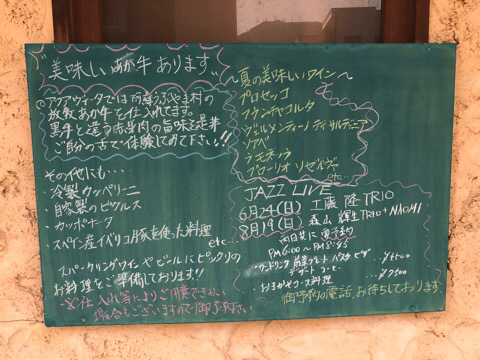 美味しいあか牛あります
○アクアヴィーテでは阿蘇うぶやま村の
放牧あか牛を仕入れてます。
黒牛と違う赤身肉の旨味を是非
ご自分の舌で体験してみて下さい!!
その他にも…
・冷製カッペリーニ
・自家製のピクルス
・カポナータ
・スペイン産イベリコ豚を使った料理
etc…
スパークリングワインやビールにピッタリの
お料理をご準備しております!!
※仕入れ等によりご用意できない
場合もございますので御了承下さい
～夏の美味しいワイン～
プロセッコ
フランチャコルタ
ヴェルメンティーノ ディ サルデーニャ
ソアベ
ラモネッラ
ブローリオ リゼルヴァ
etc
JAZZ LIVE
6月24日(日) 工藤 隆 TRIO
8月19(日) 森山 輝生 TRIO+NAOMI
両日共に 要予約
PM6:00～
・ワンドリンク 前菜プレート パスタ ピザ
デザート コーヒー
・おまかせコース料理 …¥7500
御予約の電話、お待ちしております